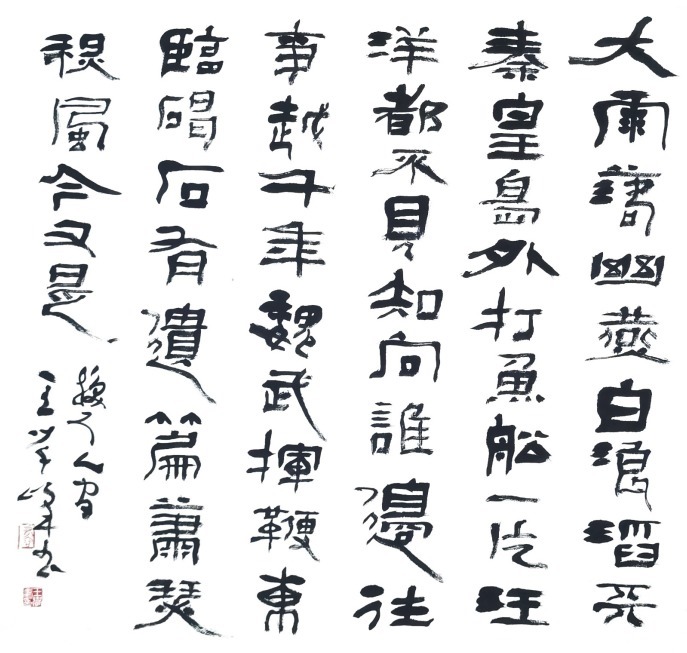 大雨落幽燕白浪滔天
秦皇島外打魚船一片汪
洋都不見知向誰邊往
事越千年魏武揮鞭東
臨碣石有遺篇蕭瑟
秋風今又是
換了人间
王学书